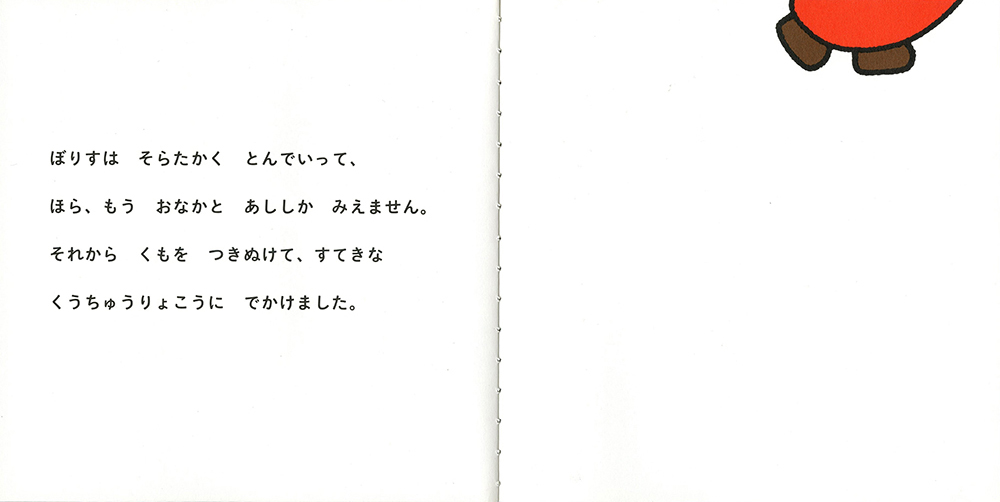 ぼりすは　そらたかく　とんでいって、
ほら、もう　おなかと　あししか　みえません。
それから　くもを　つきぬけて、すてきな
くうちゅうりょこうに　でかけました。